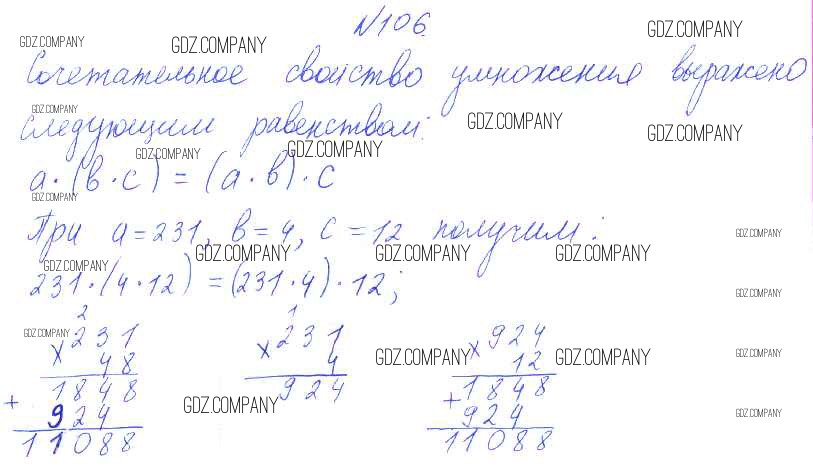 №106.
GDZ.COMPANY GDZ.COMPANY GDZ.COMPANY
Сочетательное свойство умножения выражено
GDZ.COMPANY
следующим равенством:
GDZ.COMPANY GDZ.COMPANY
GDZ.COMPANY GDZ.COMPANY
a · (в · c) = (a · в) · c
GDZ.COMPANY
При a = 231, в = 4, c = 12 получим:
GDZ.COMPANY
GDZ.COMPANY GDZ.COMPANY GDZ.COMPANY
GDZ.COMPANY
231 · (4 · 12) = (231 · 4) · 12;
GDZ.COMPANY
2 1
GDZ.COMPANY
× 231 × 231 × 924
48 4 12
GDZ.COMPANY GDZ.COMPANY GDZ.COMPANY
+ 1848 924 + 1848
GDZ.COMPANY
924 924
GDZ.COMPANY
11088 11088